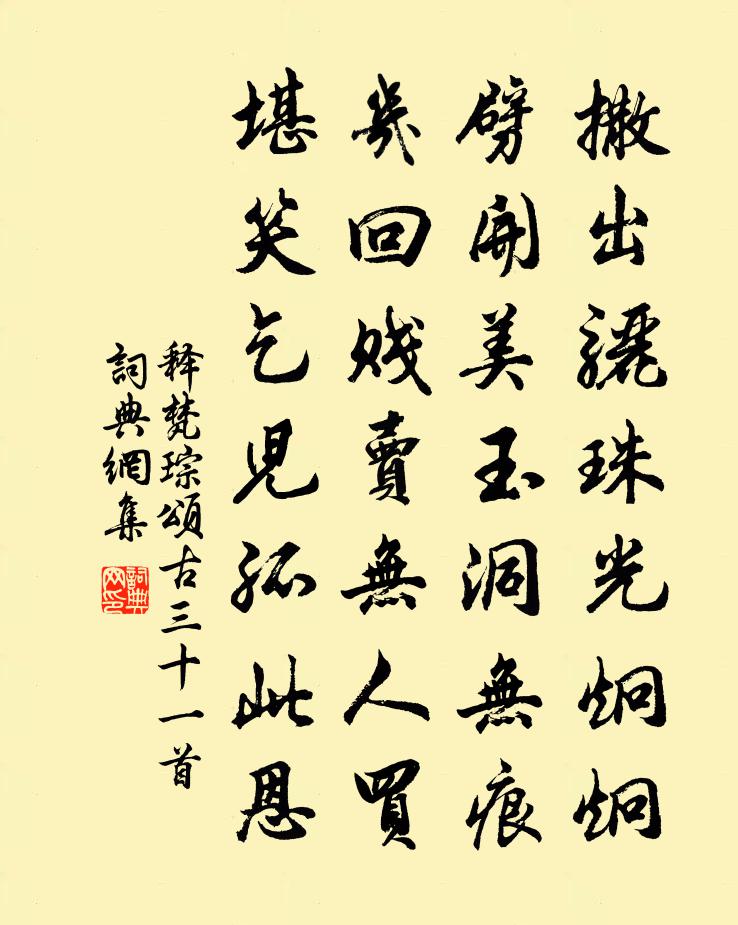 撒出驪珠光炯炯
劈開美玉洞無痕
幾回賤賣無人買
堪笑乞兒孤此恩
释梵琮頌古三十一首
詞典網集
詞典网印